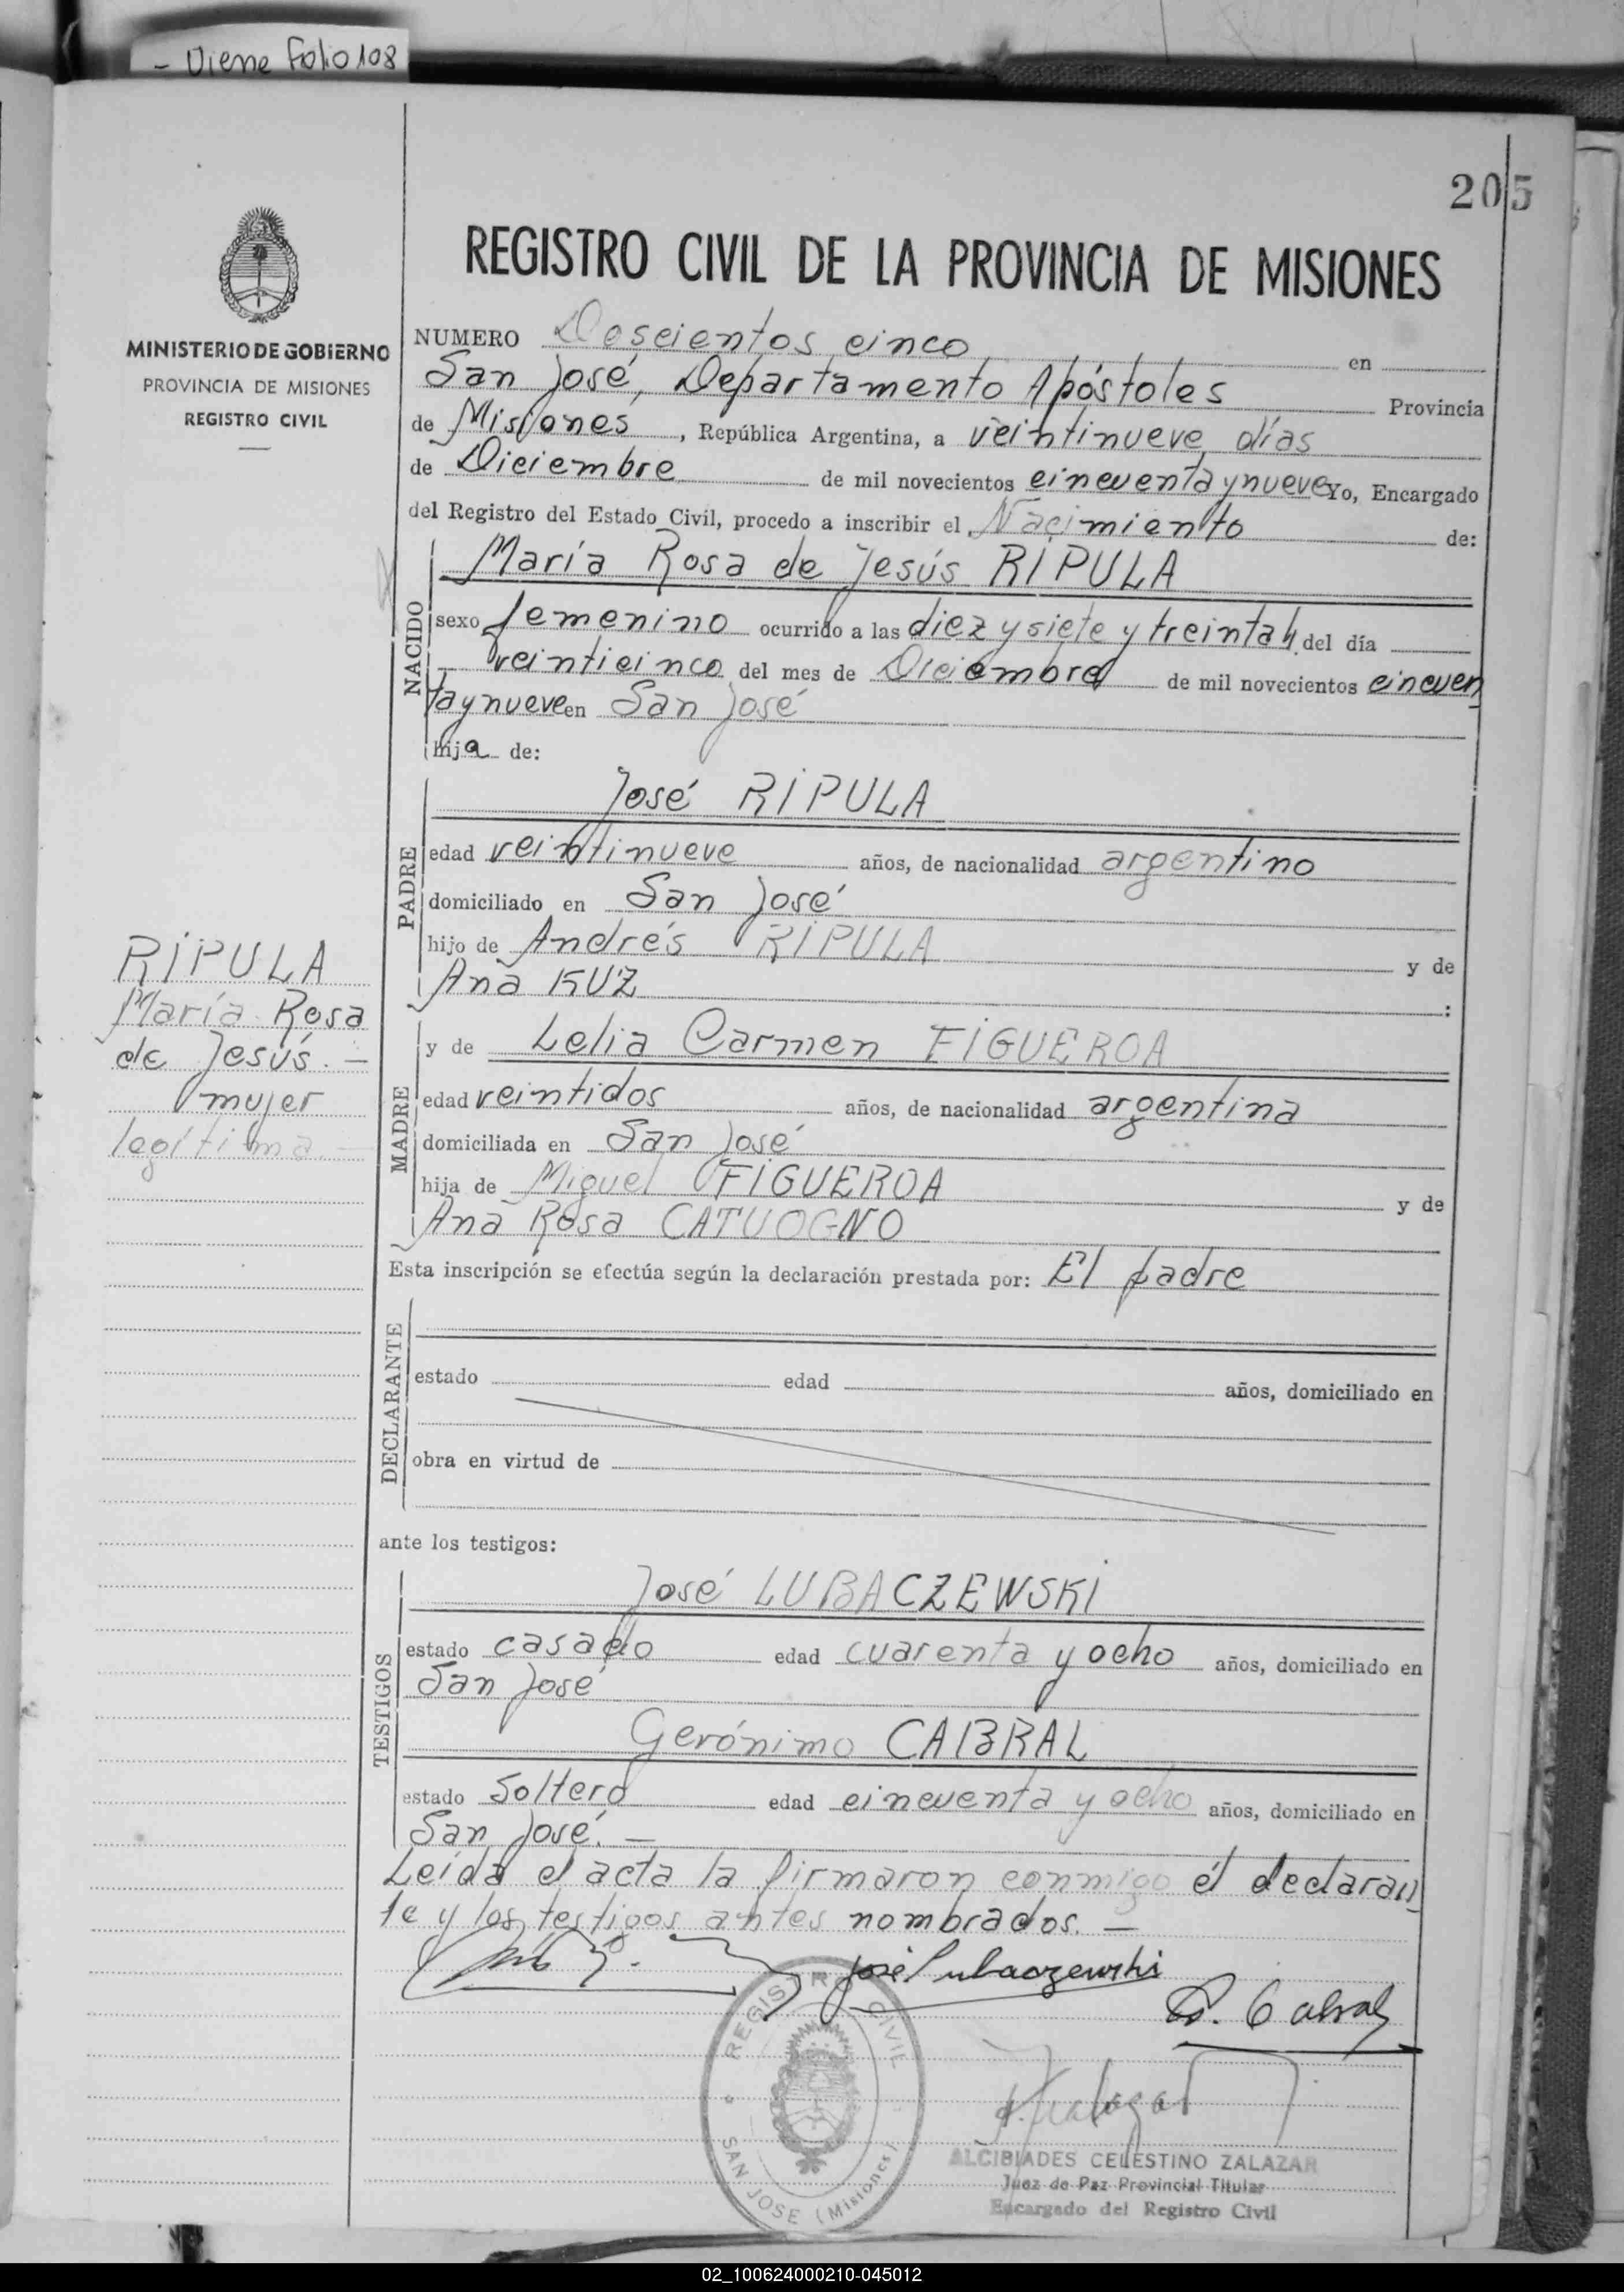 - Viene Folio 108
205
REGISTRO CIVIL DE LA PROVINCIA DE MISIONES
MINISTERIO DE GOBIERNO
PROVINCIA DE MISIONES
REGISTRO CIVIL
NUMERO Doscientos cinco en
San José, Departamento Apóstoles Provincia
de Misiones, República Argentina, a veintinueve días
de Diciembre de mil novecientos cincuenta y nueve Yo, Encargado
del Registro del Estado Civil, procedo a inscribir el Nacimiento de:
NACIDO
María Rosa de Jesús RIPULA
sexo femenino ocurrido a las diez y siete y treinta h. del día
veinticinco del mes de Diciembre de mil novecientos cincuen
ta y nueve en San José
hija de:
PADRE
José RIPULA
edad veintinueve años, de nacionalidad argentino
domiciliado en San José
hijo de Andrés RIPULA y de
Ana KUZ :
RIPULA
María Rosa
de Jesús. -
mujer
legítima. -
MADRE
y de Lelia Carmen FIGUEROA
edad veintidos años, de nacionalidad argentina
domiciliada en San José
hija de Miguel FIGUEROA y de
Ana Rosa CATUOGNO
Esta inscripción se efectúa según la declaración prestada por: El padre
DECLARANTE
estado edad años, domiciliado en
obra en virtud de
ante los testigos:
TESTIGOS
José LUBACZEWSKI
estado casado edad cuarenta y ocho años, domiciliado en
San José
Gerónimo CABRAL
estado Soltero edad cincuenta y ocho años, domiciliado en
San José. -
Leída el acta la firmaron conmigo el declaran
te y los testigos antes nombrados. -
José Lubaczewski
G. Cabral
REGISTRO CIVIL
SAN JOSE (Misiones)
ALCIBIADES CELESTINO ZALAZAR
Juez de Paz Provincial Titular
Encargado del Registro Civil
02_100624000210-045012